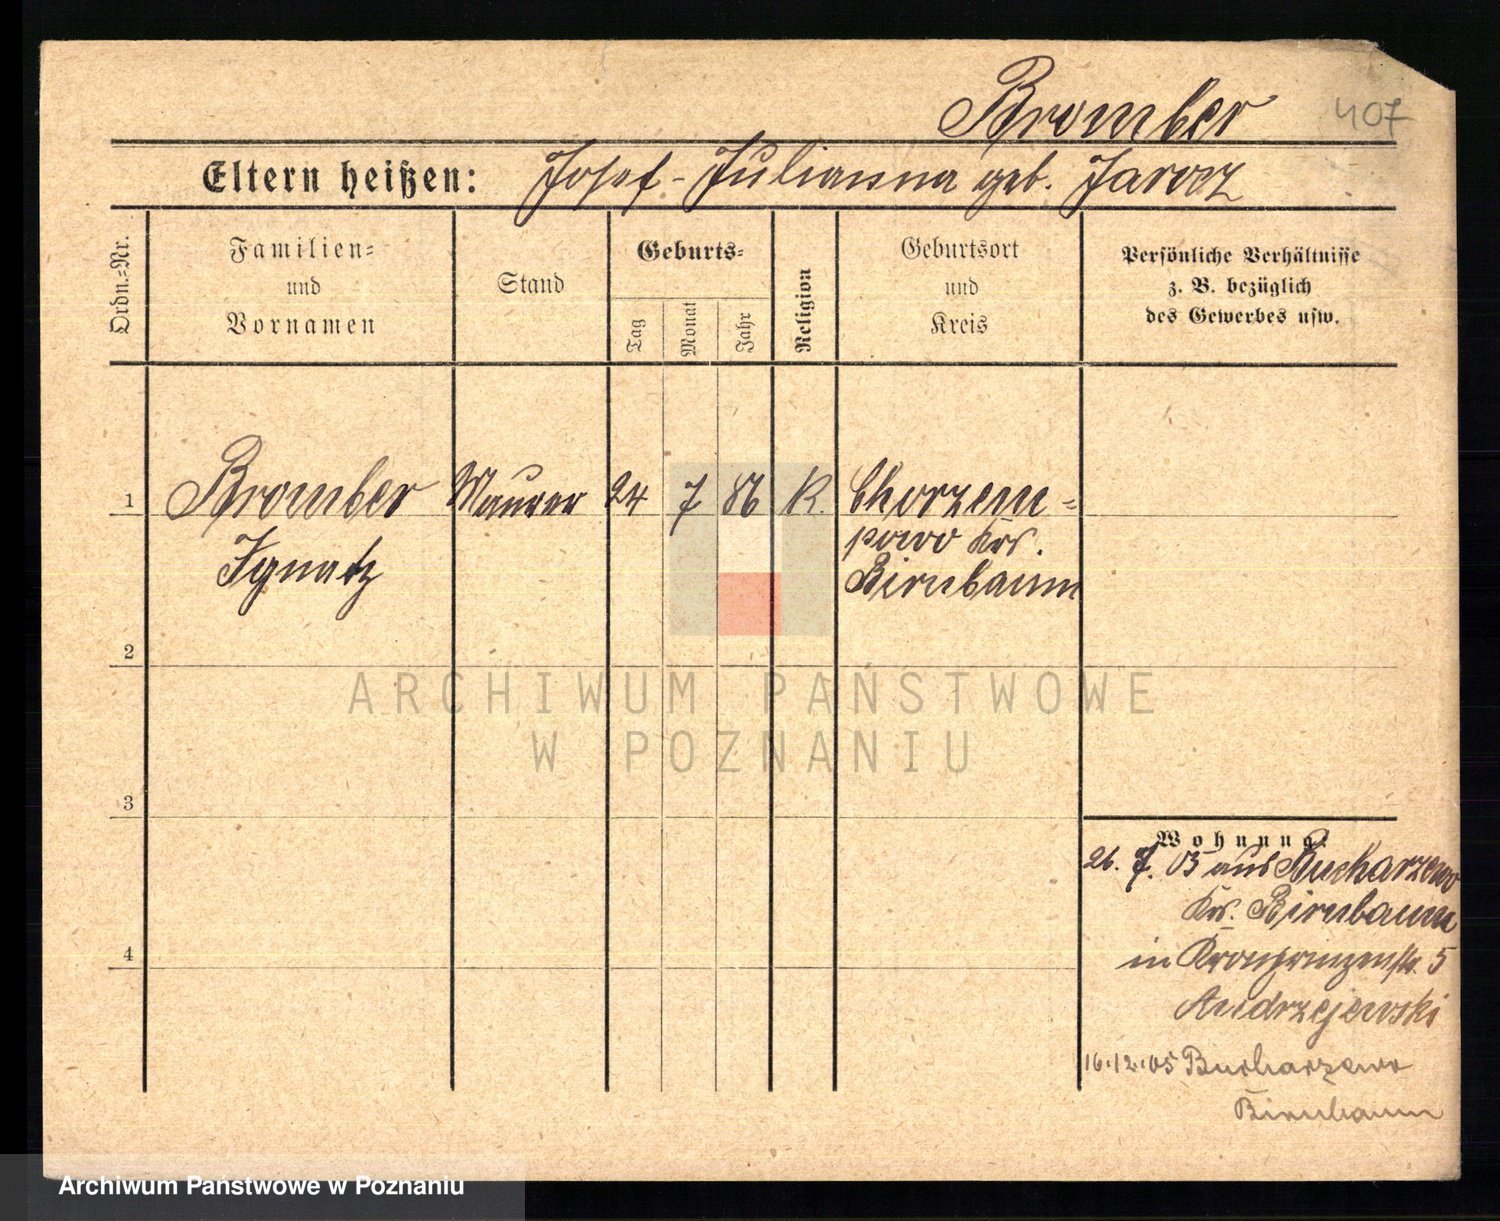 Bromber 407
Eltern heißen: Josef - Julianna geb. Jarocz
Ordn.=Nr.
Familien=
und
Vornamen
Stand
Geburts=
Tag
Monat
Jahr
Religion
Geburtsort
und
Kreis
Persönliche Verhältnisse
z. B. bezüglich
des Gewerbes usw.
1 Bromber Maurer 24 7 86 K. Chorzem=
powo Krs.
Ignatz Birnbaum
2
3
4
Wohnung:
26. 7. 05 aus Bucharzewo
Krs. Birnbaum
in Kronprinzenstr. 5
Andrzejewski
16.12.05 Bucharzewo
Birnbaum
ARCHIWUM PAŃSTWOWE
W POZNANIU
Archiwum Państwowe w Poznaniu